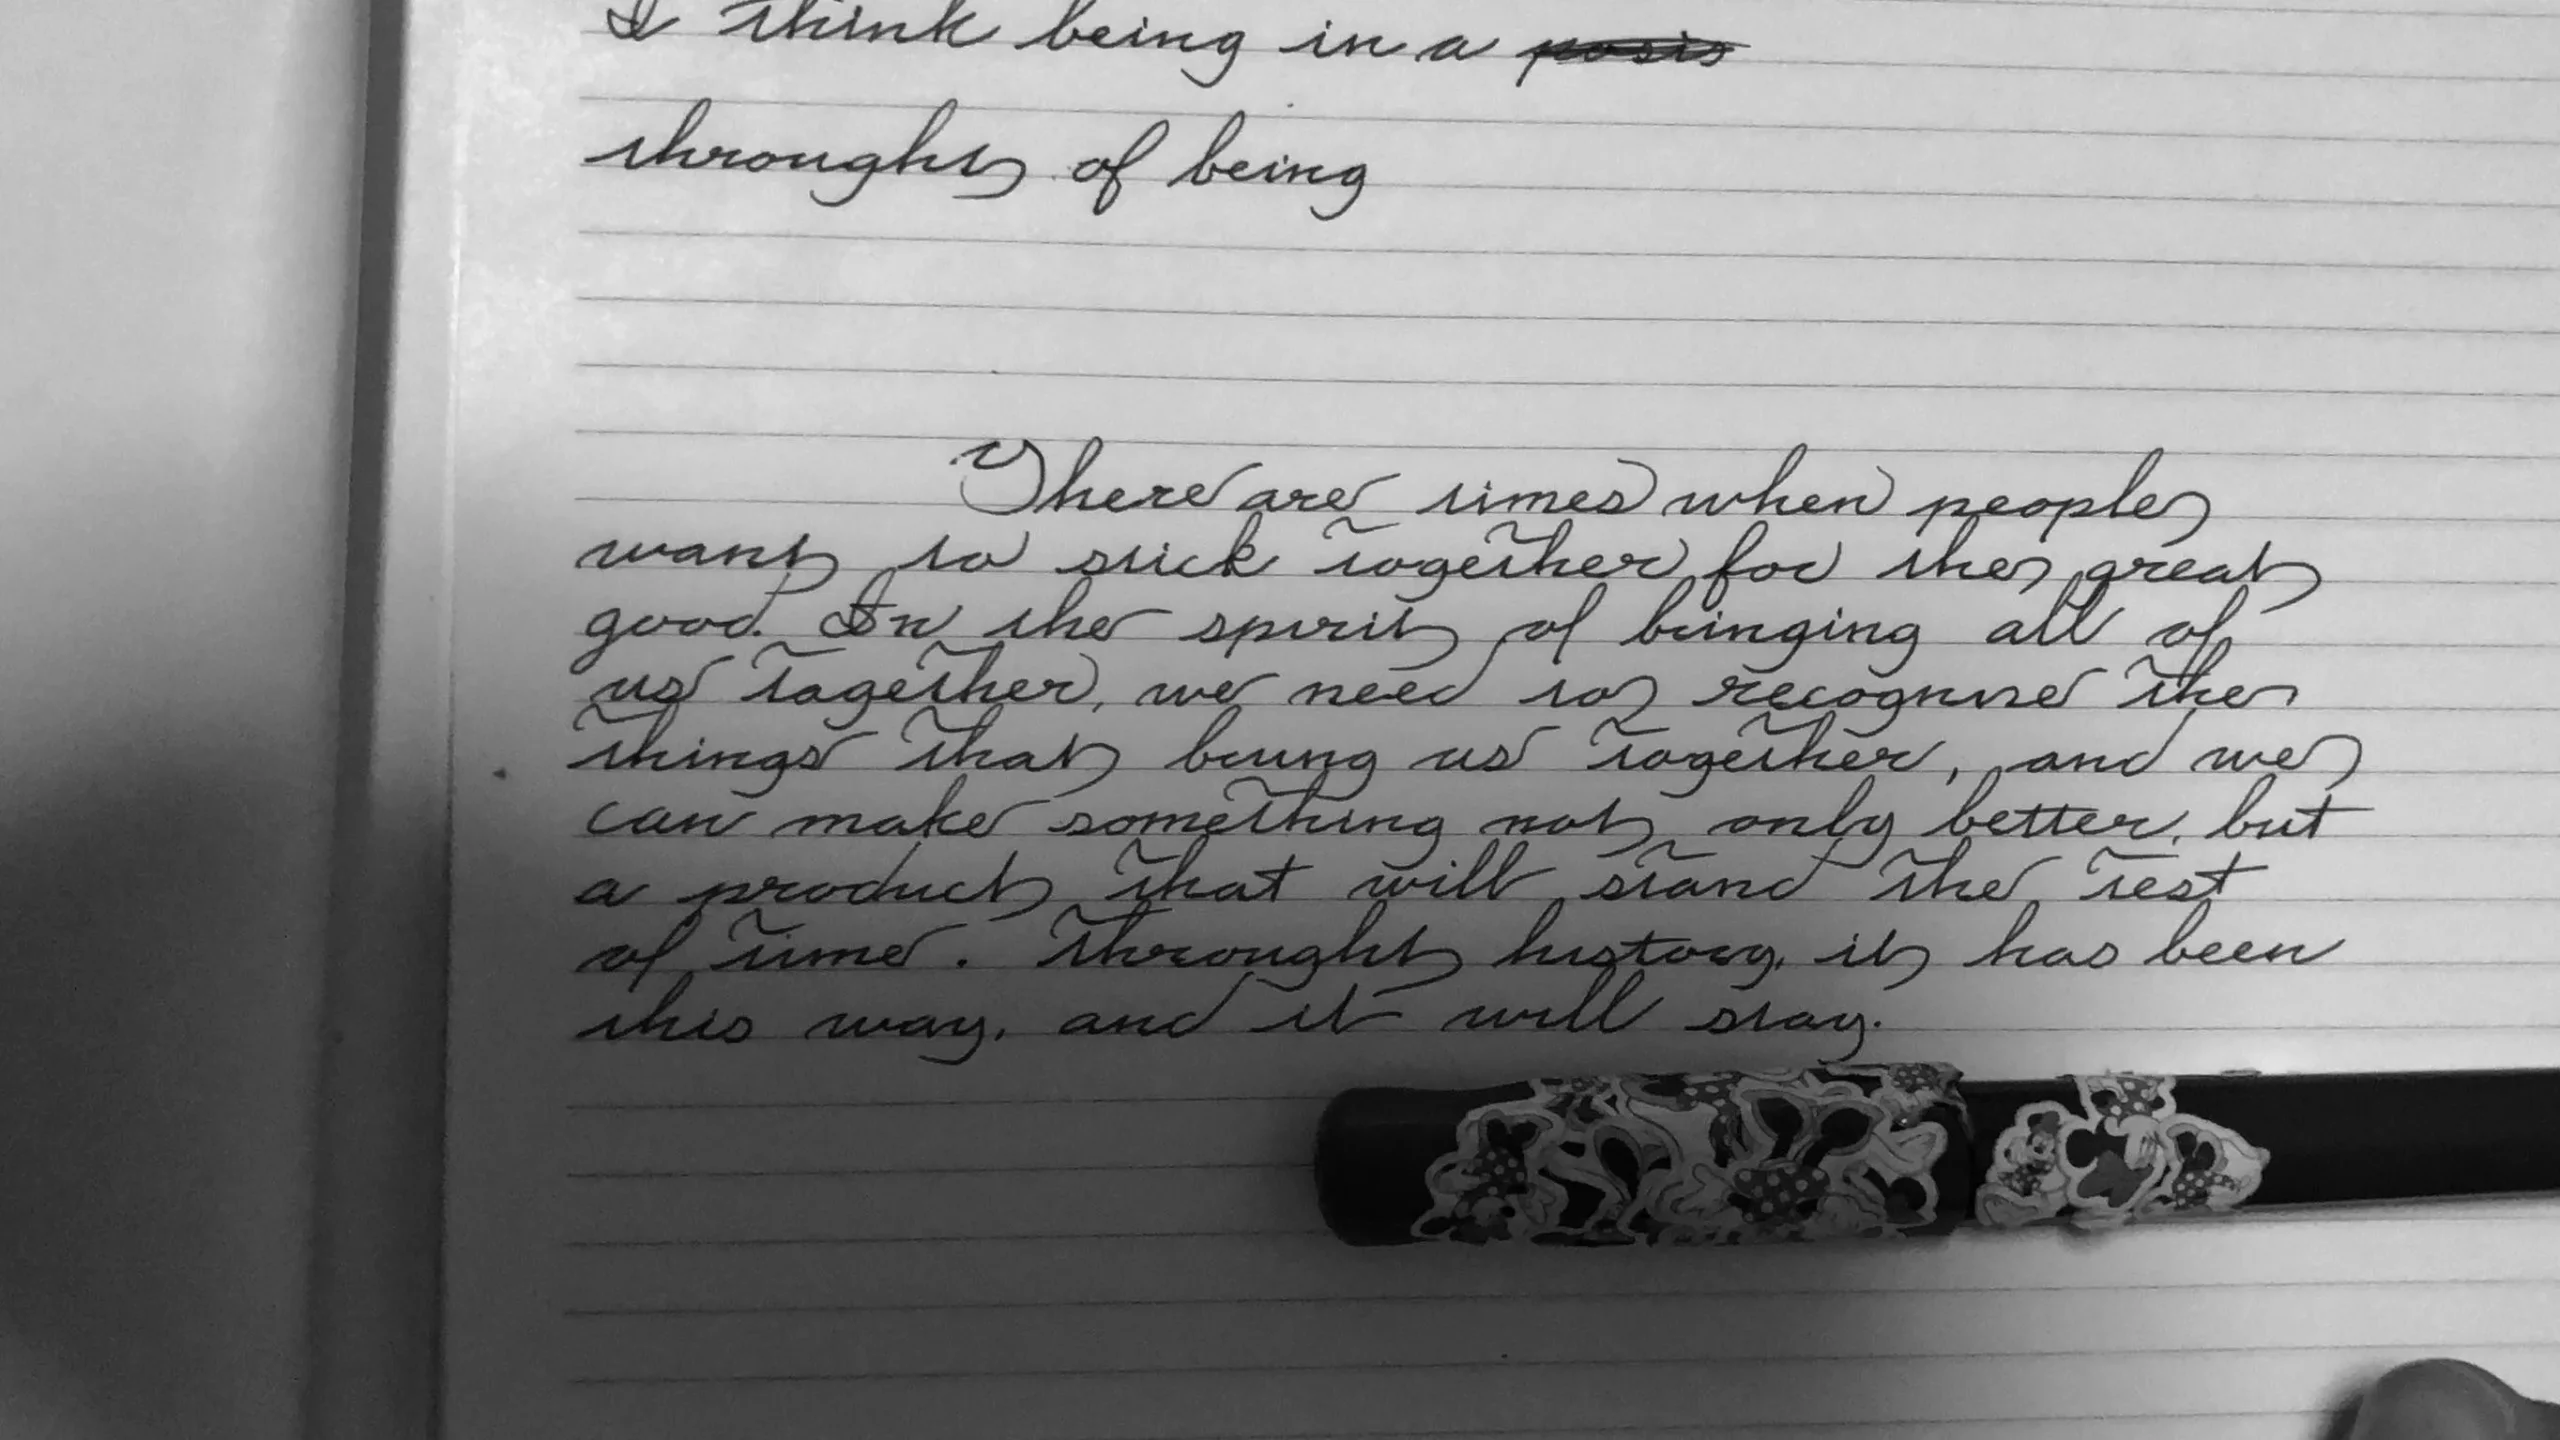 I think being in a posis
throught of being
There are times when people
want to stick together for the great
good. In the spirit of bringing all of
us together, we need to recognize the
things that bring us together, and we
can make something not only better, but
a product that will stand the test
of time. Throught history, it has been
this way, and it will stay.